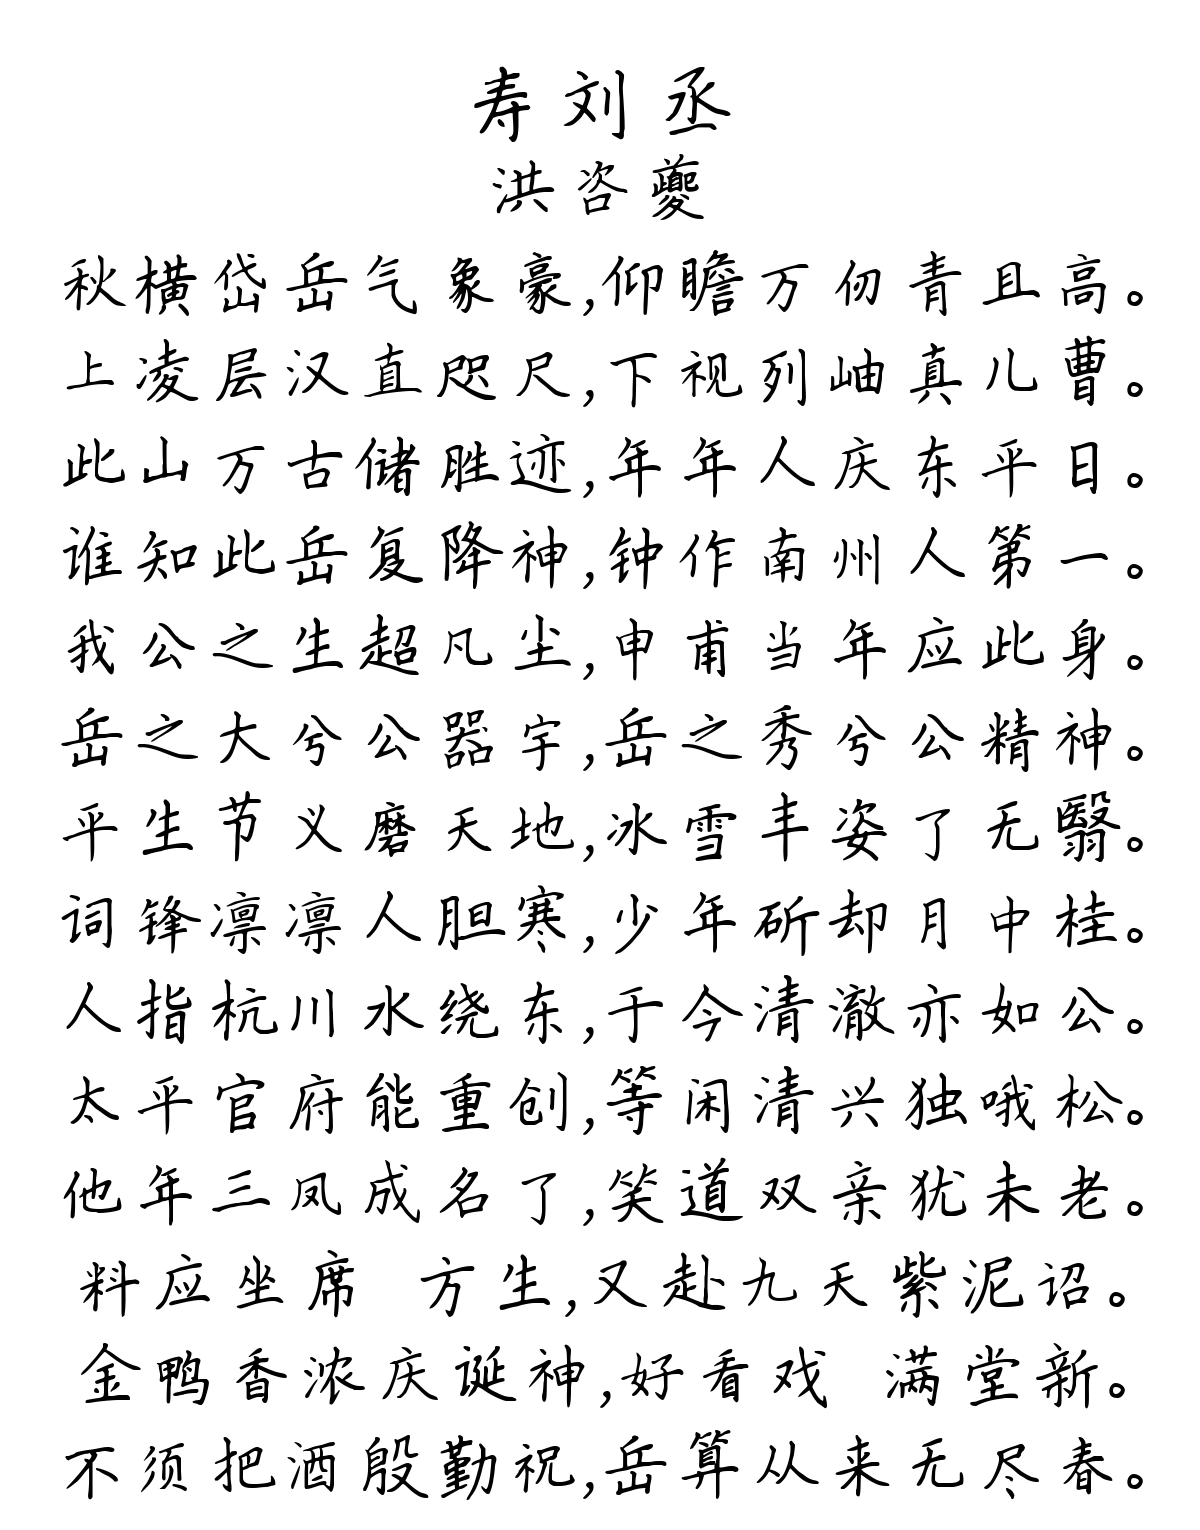 寿刘丞
洪咨夔
秋横岱岳气象豪,仰瞻万仞青且高。
上凌层汉直咫尺,下视列岫真儿曹。
此山万古储胜迹,年年人庆东平日。
谁知此岳复降神,钟作南州人第一。
我公之生超凡尘,申甫当年应此身。
岳之大兮公器宇,岳之秀兮公精神。
平生节义磨天地,冰雪丰姿了无翳。
词锋凛凛人胆寒,少年斫却月中桂。
人指杭川水绕东,于今清澈亦如公。
太平官府能重创,等闲清兴独哦松。
他年三凤成名了,笑道双亲犹未老。
料应坐席 方生,又赴九天紫泥诏。
金鸭香浓庆诞神,好看戏 满堂新。
不须把酒殷勤祝,岳算从来无尽春。